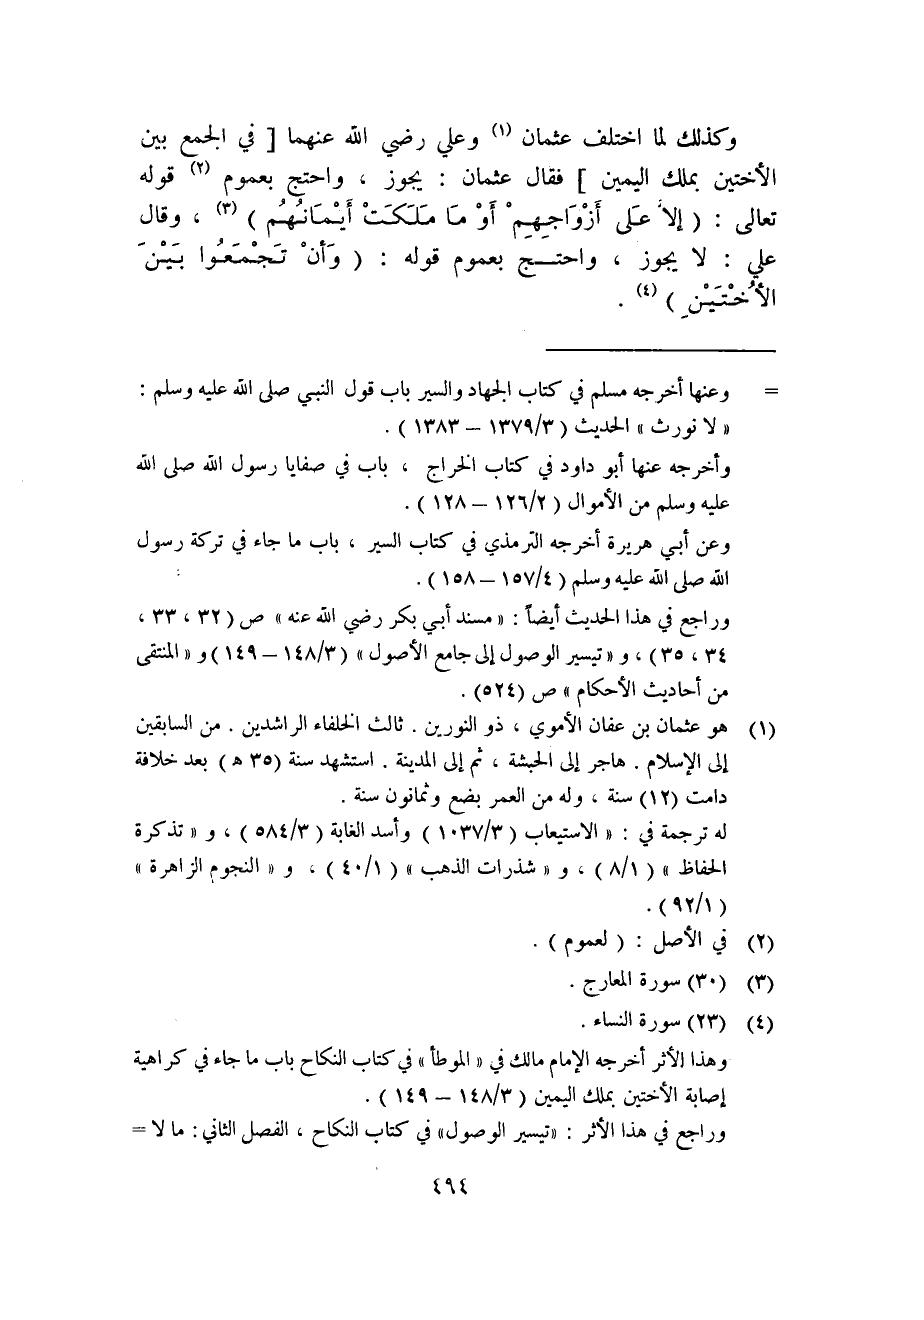 وكذلك لما اختلف عثمان (١) وعلي رضي الله عنهما [ في الجمع بين
الأختين بملك اليمين ] فقال عثمان : يجوز ، واحتج بعموم (٢) قوله
تعالى : ( إِلاَّ عَلَى أَزْوَاجِهِمْ أَوْ مَا مَلَكَتْ أَيْمَانُهُم ) (٣) ، وقال
علي : لا يجوز ، واحتـــج بعموم قوله : ( وَأَنْ تَجْمَعُوا بَيْنَ
الأُخْتَيْنِ ) (٤) .
= وعنها أخرجه مسلم في كتاب الجهاد والسير باب قول النبي صلى الله عليه وسلم :
« لا نورث » الحديث ( ١٣٧٩/٣ – ١٣٨٣ ) .
وأخرجه عنها أبو داود في كتاب الخراج ، باب في صفايا رسول الله صلى الله
عليه وسلم من الأموال ( ١٢٦/٢ – ١٢٨ ) .
وعن أبي هريرة أخرجه الترمذي في كتاب السير ، باب ما جاء في تركة رسول
الله صلى الله عليه وسلم ( ١٥٧/٤ – ١٥٨ ) .
وراجع في هذا الحديث أيضاً : « مسند أبي بكر رضي الله عنه » ص ( ٣٢ ، ٣٣ ،
٣٤ ، ٣٥ ) ، و « تيسير الوصول إلى جامع الأصول » ( ١٤٨/٣ – ١٤٩ ) و « المنتقى
من أحاديث الأحكام » ص (٥٢٤) .
(١) هو عثمان بن عفان الأموي ، ذو النورين . ثالث الخلفاء الراشدين . من السابقين
إلى الإسلام . هاجر إلى الحبشة ، ثم إلى المدينة . استشهد سنة (٣٥ ه ) بعد خلافة
دامت (١٢) سنة ، وله من العمر بضع وثمانون سنة .
له ترجمة في : « الاستيعاب ( ١٠٣٧/٣ ) وأسد الغابة ( ٥٨٤/٣ ) ، و « تذكرة
الحفاظ » ( ٨/١ ) ، و « شذرات الذهب » ( ٤٠/١ ) ، و « النجوم الزاهرة »
( ٩٢/١ ) .
(٢) في الأصل : ( لعموم ) .
(٣) (٣٠) سورة المعارج .
(٤) (٢٣) سورة النساء .
وهذا الأثر أخرجه الإمام مالك في « الموطأ » في كتاب النكاح باب ما جاء في كراهية
إصابة الأختين بملك اليمين ( ١٤٨/٣ – ١٤٩ ) .
وراجع في هذا الأثر : «تيسير الوصول» في كتاب النكاح ، الفصل الثاني : ما لا =
٤٩٤